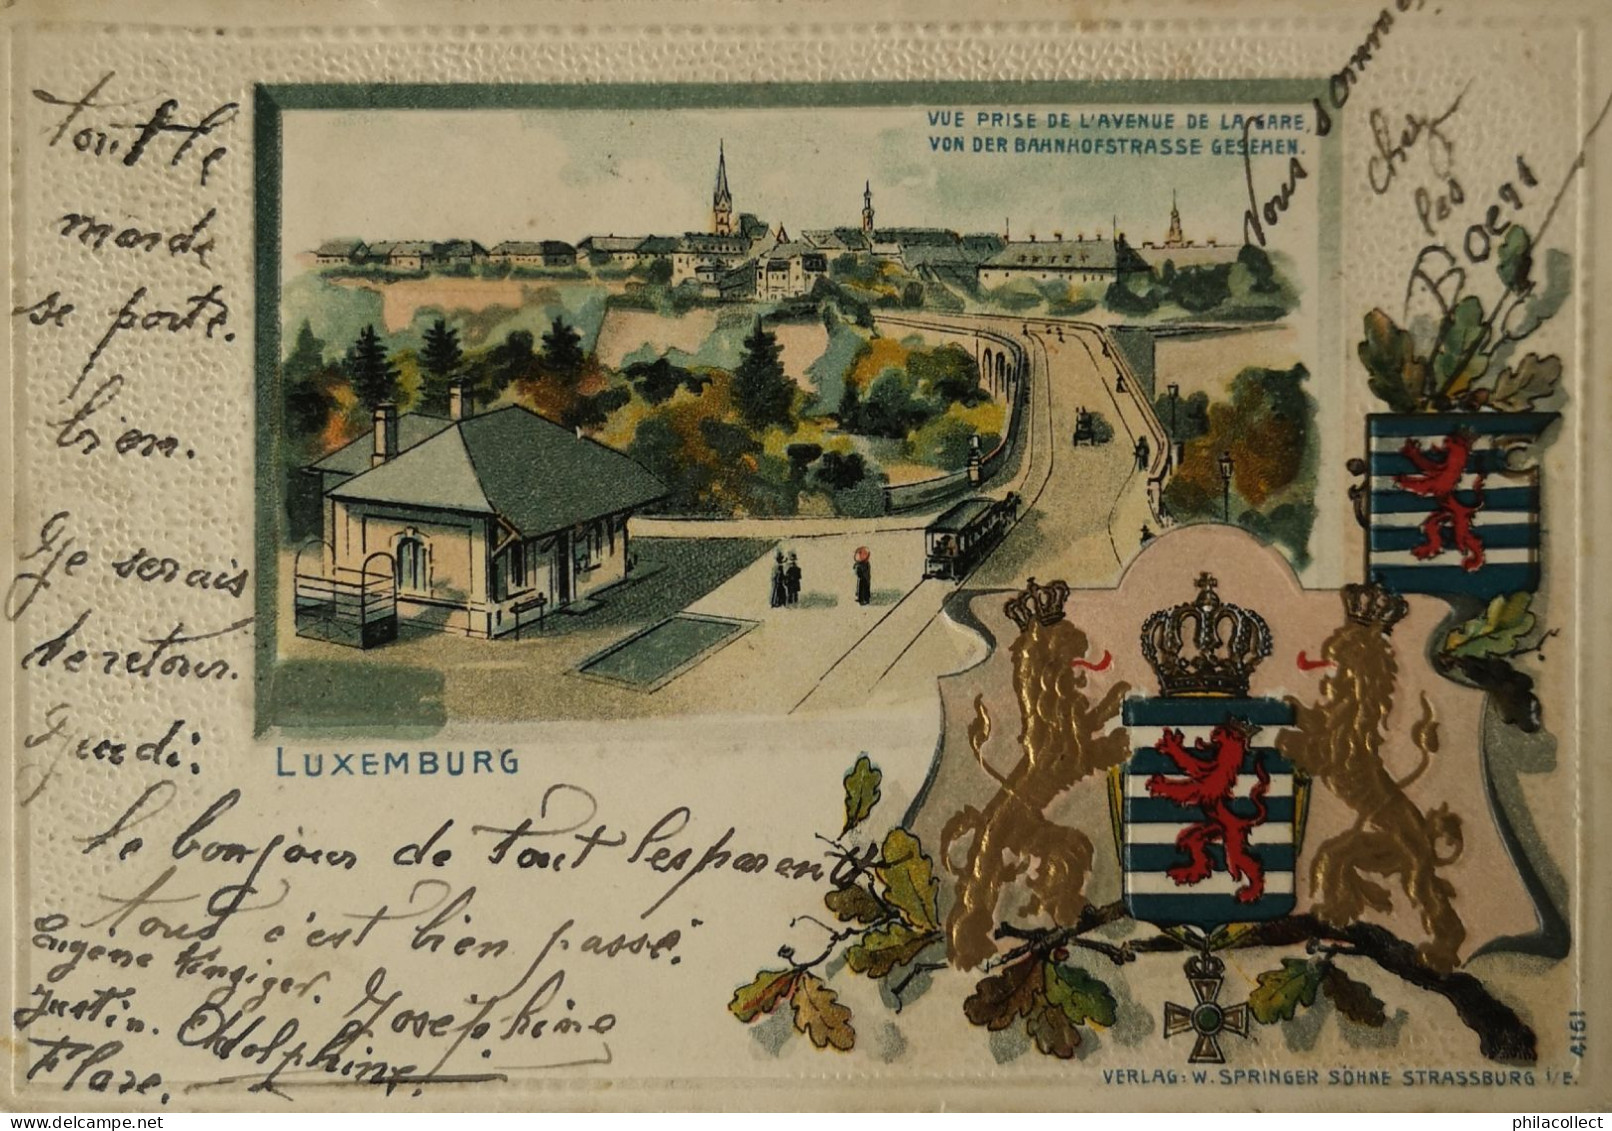 VUE PRISE DE L'AVENUE DE LA GARE,
VON DER BAHNHOFSTRASSE GESEHEN.
Vous sommes
chez
les
Boeg
tout le
monde
se porte.
bien.
Je serais
de retour.
Jeudi:
LUXEMBURG
le bonjour de tout les parents
tous c'est bien passé.
Eugene Kinziger. Joséphine
Justin. Adolphine.
Flore.
4151
VERLAG: W. SPRINGER SÖHNE STRASSBURG i/E.
philacollect